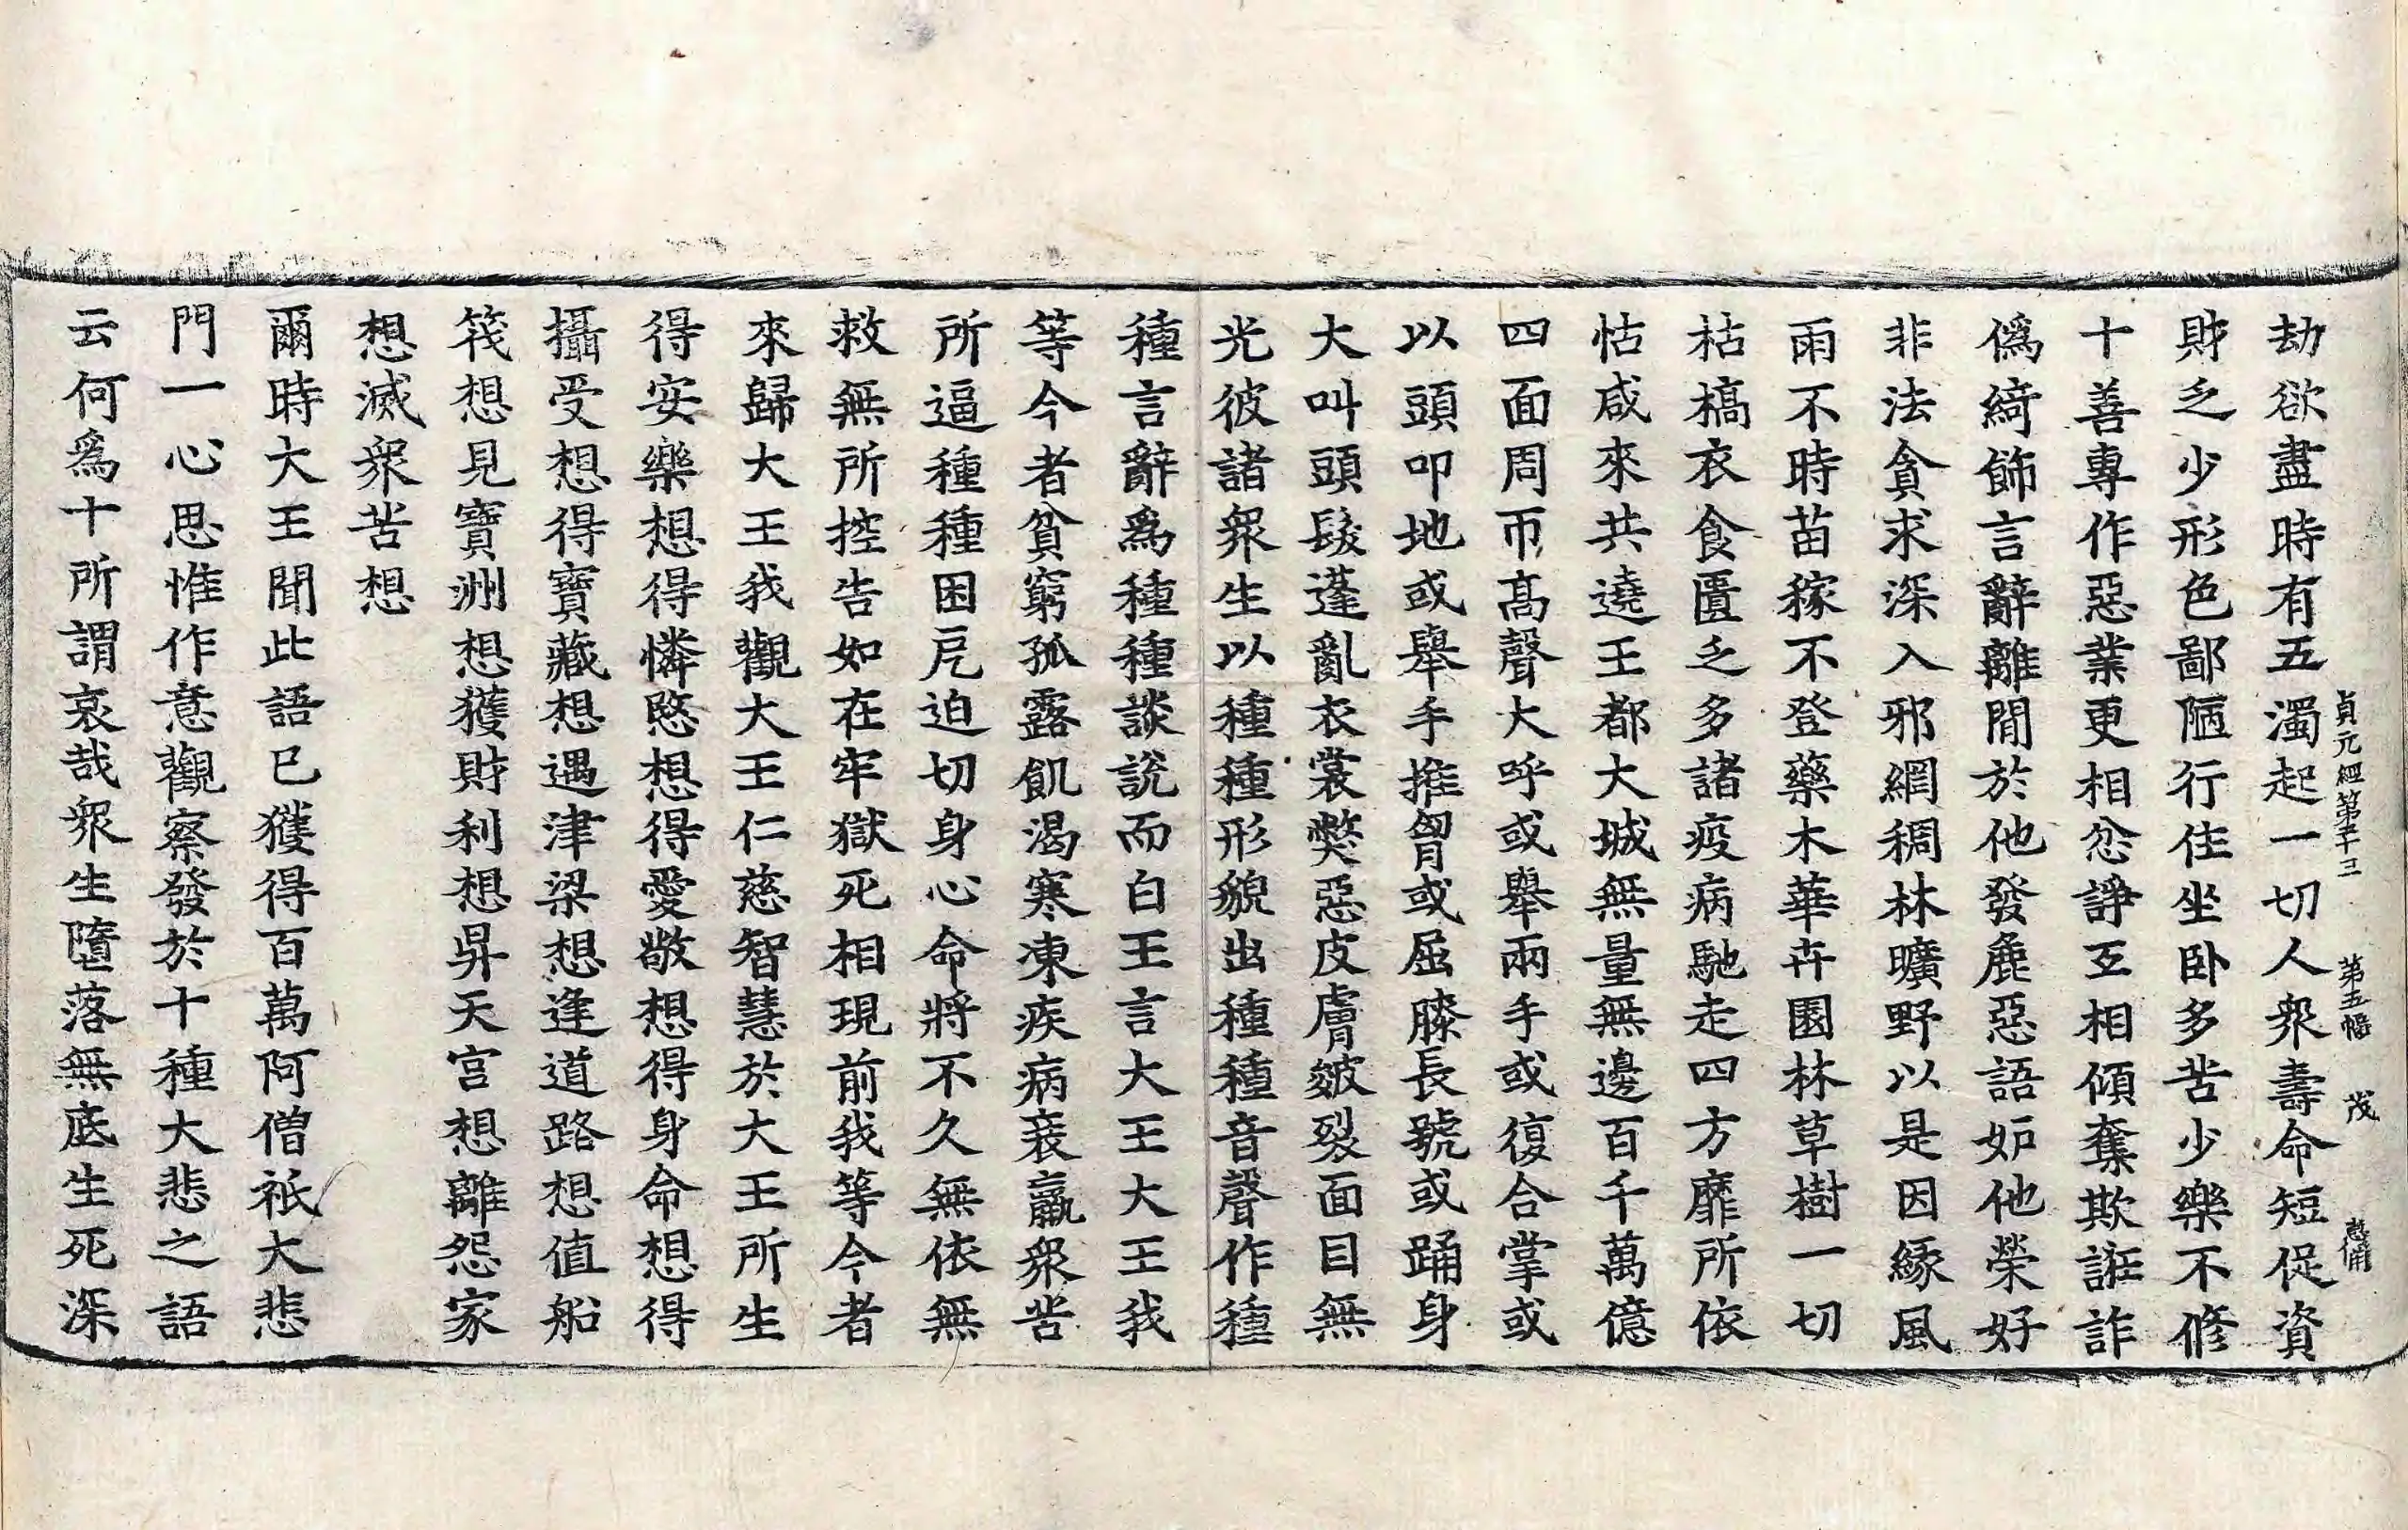 貞元經第二十三　第五幅　茂
劫欲盡時有五濁起一切人衆壽命短促資
財乏少形色鄙陋行住坐卧多苦少樂不修
十善專作惡業更相忿諍互相傾奪欺誑詐
僞綺飾言辭離間於他發麁惡語妬他榮好
非法貪求深入邪網稠林曠野以是因緣風
雨不時苗稼不登藥木華卉園林草樹一切
枯槁衣食匱乏多諸疫病馳走四方靡所依
怙咸來共遶王都大城無量無邊百千萬億
四面周帀髙聲大呼或舉兩手或復合掌或
以頭叩地或舉手推胷或屈膝長號或踊身
大叫頭髮蓬亂衣裳弊惡皮膚皴裂面目無
光彼諸衆生以種種形貌出種種音聲作種
種言辭爲種種談說而白王言大王大王我
等今者貧窮孤露飢渴寒凍疾病衰羸衆苦
所逼種種困戹迫切身心命將不久無依無
救無所控告如在牢獄死相現前我等今者
來歸大王我觀大王仁慈智慧於大王所生
得安樂想得憐愍想得愛敬想得身命想得
攝受想得寶藏想遇津梁想逢道路想值船
筏想見寶洲想獲財利想昇天宫想離怨家
想滅衆苦想
爾時大王聞此語已獲得百萬阿僧祇大悲
門一心思惟作意觀察發於十種大悲之語
云何爲十所謂哀哉衆生墮落無底生死深